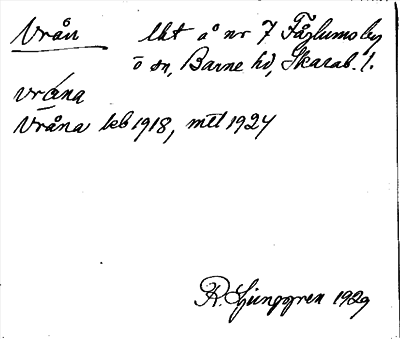 Vrån lht å nr 7 Fåglumsby
o sn, Barne hd, Skarab. l.
vrǻna
Vråna kb 1918, mtl 1924
R. Ljunggren 1929